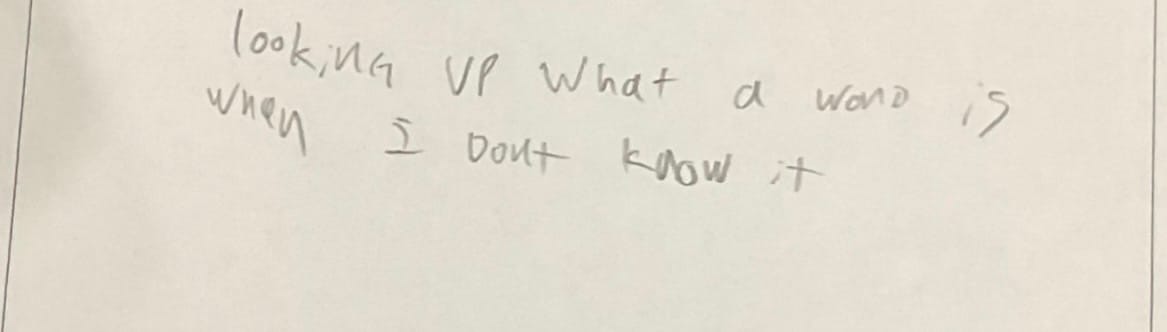 looking UP what a word is
when I Dont know it